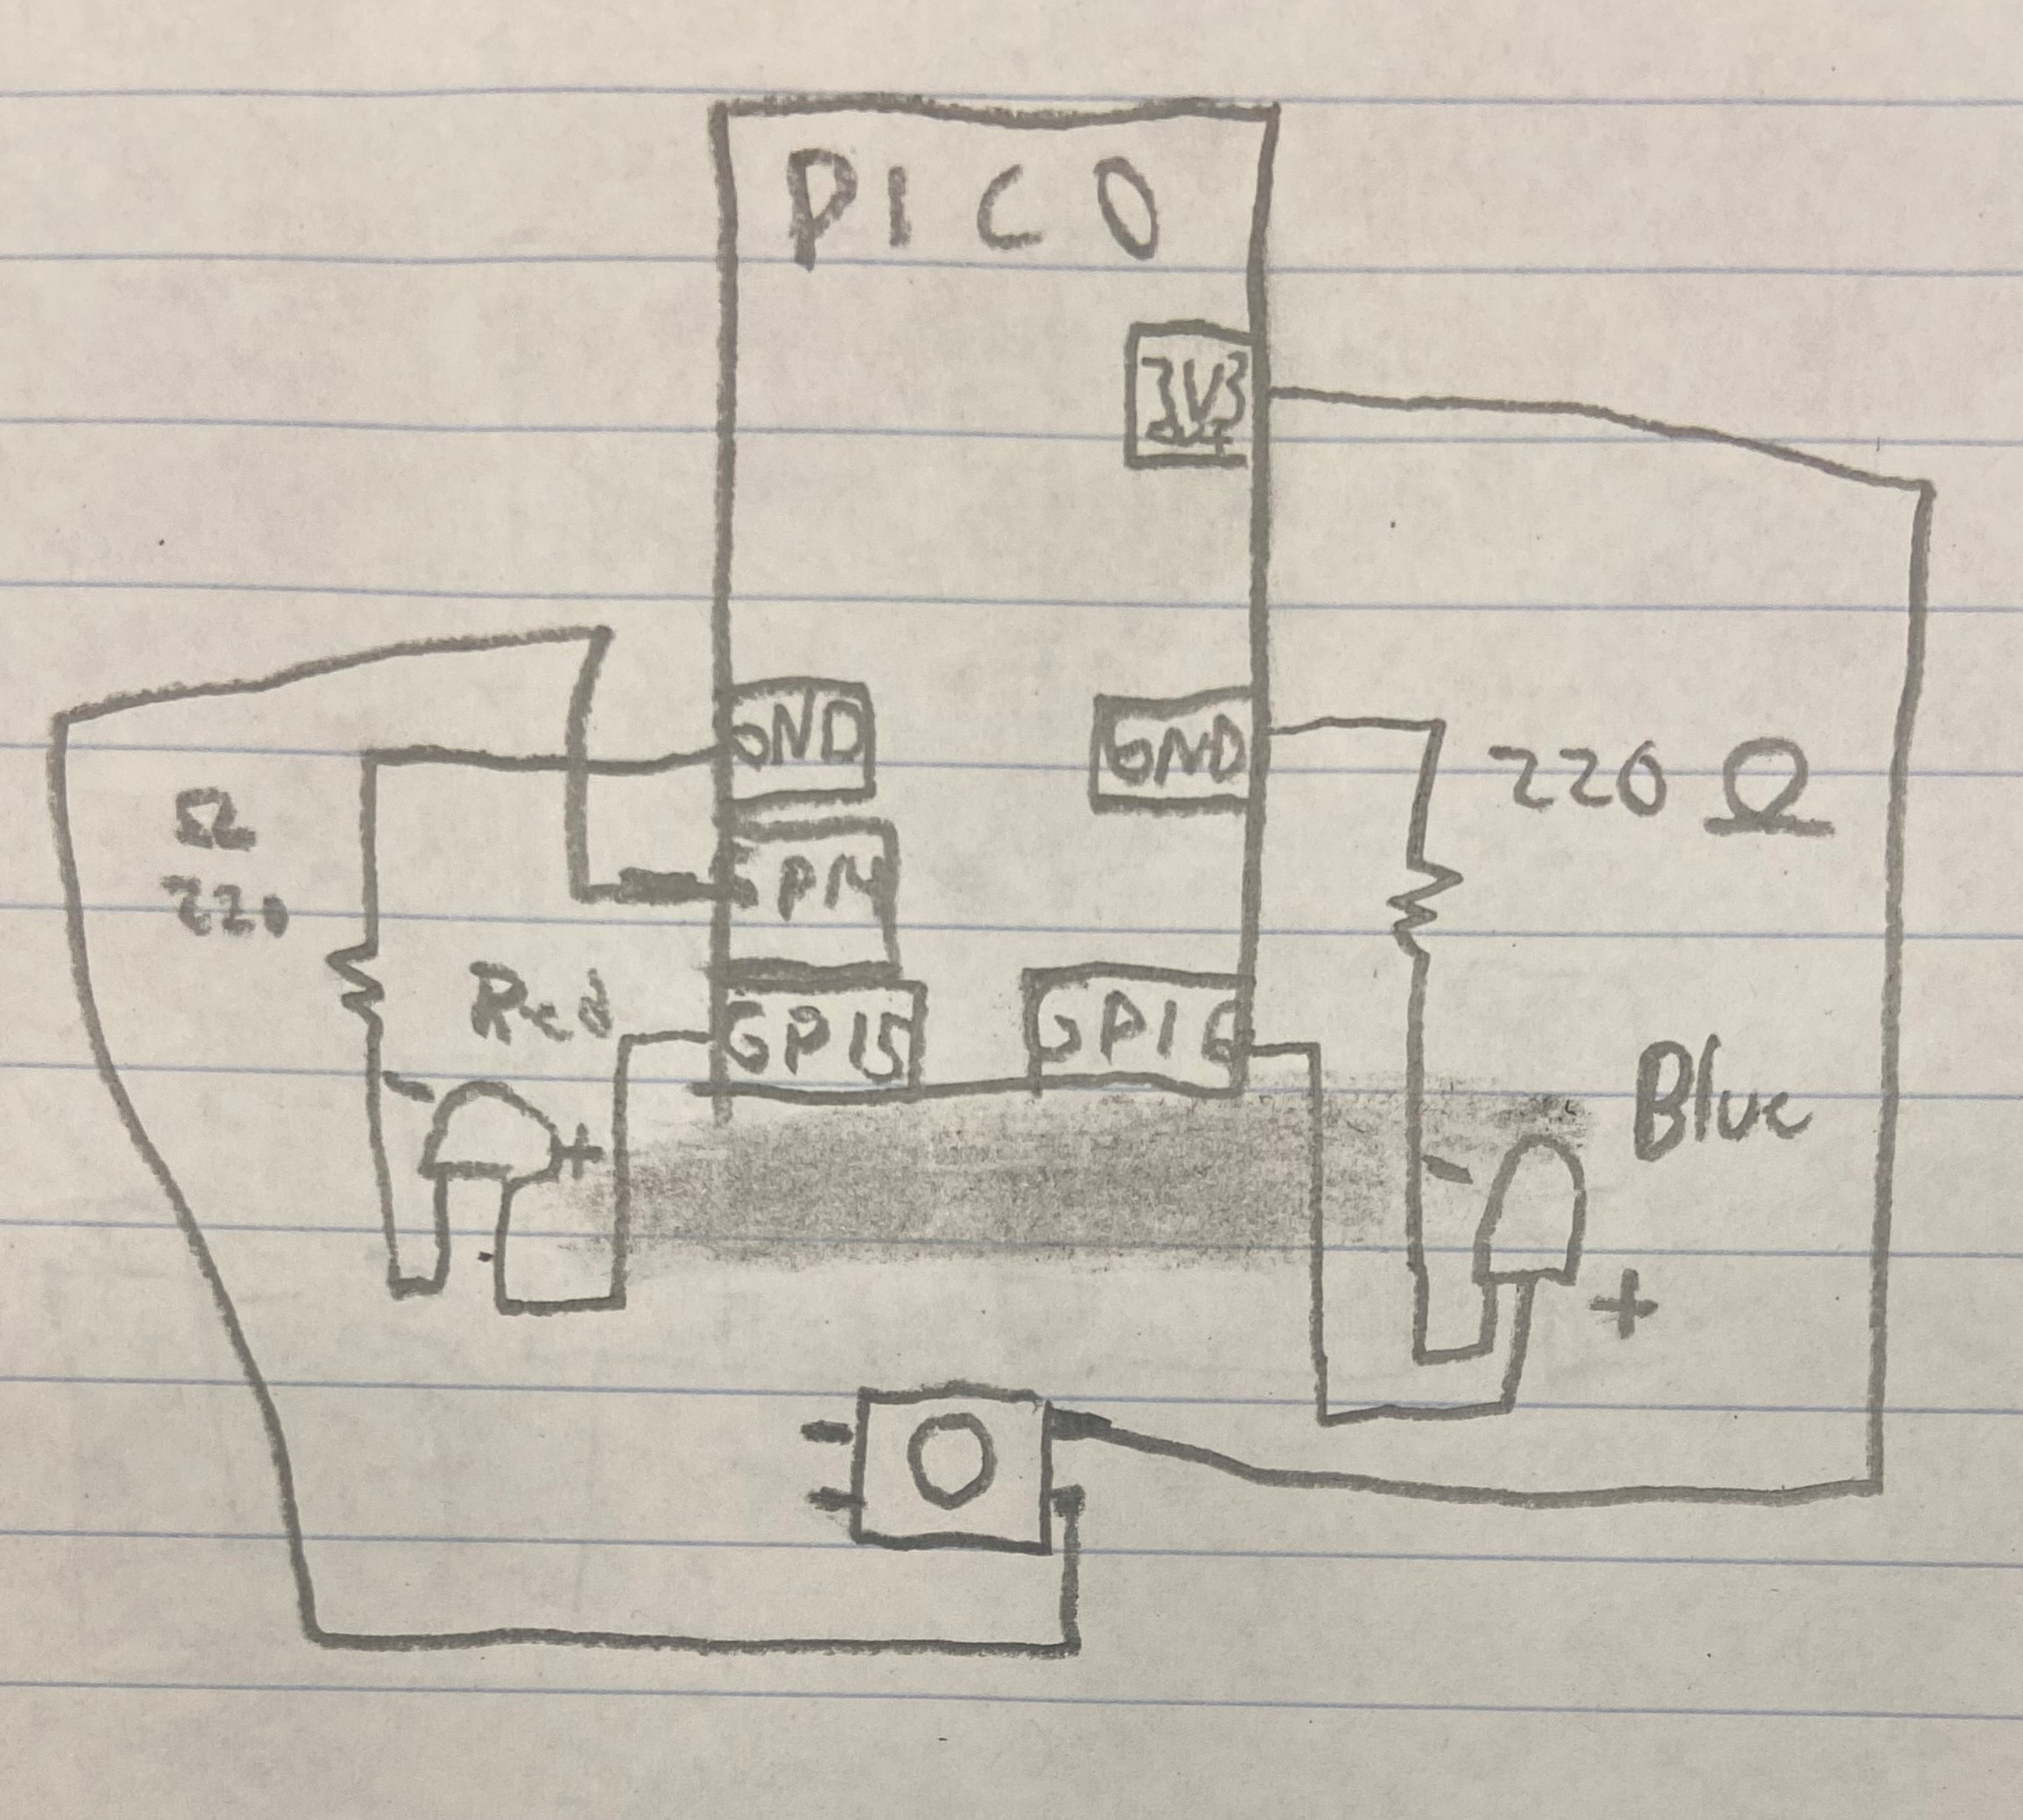 PICO
3V3
out
GND
GND
220 Ω
Ω
220
GP14
Red
GP15
GP16
Blue
-
+
-
+